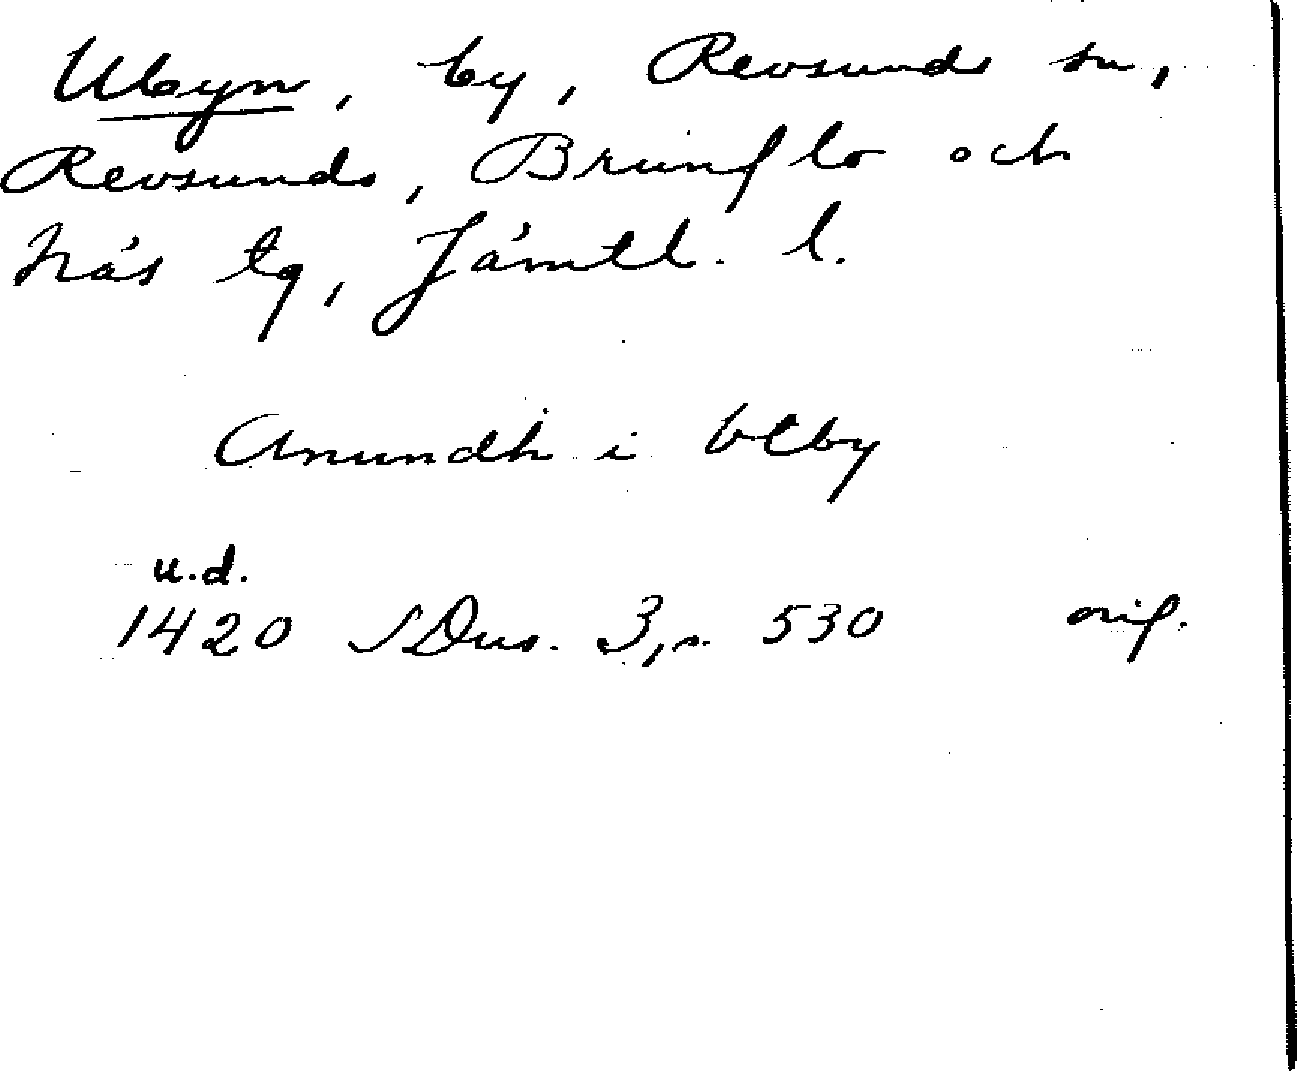 Ubyn, by, Revsunds sn,
Revsunds, Brunflo och
Näs tg, Jämtl. l.
Anundh i Vlby
u.d.
1420 SDns. 3, s. 530 orig.